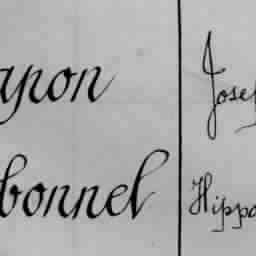 ayron
bonnel
Josef
Hippo